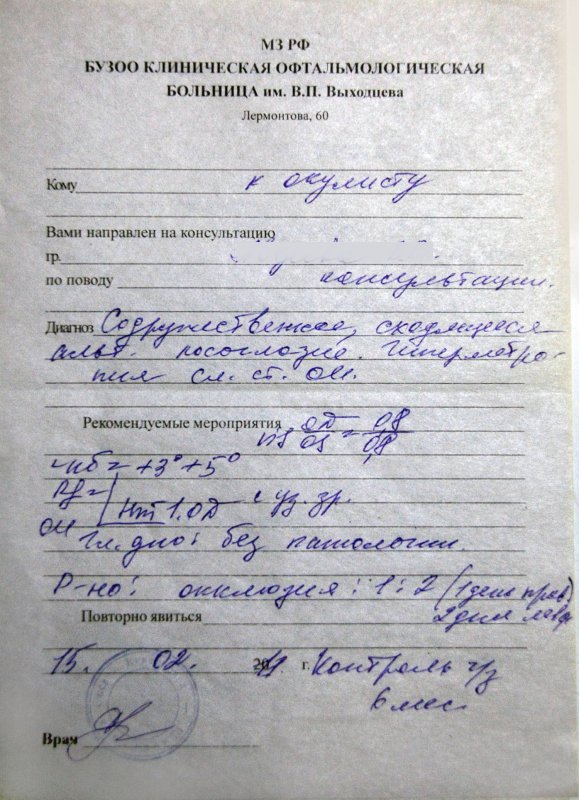 МЗ РФ
БУЗОО КЛИНИЧЕСКАЯ ОФТАЛЬМОЛОГИЧЕСКАЯ
БОЛЬНИЦА им. В.П. Выходцева
Лермонтова, 60
Кому к окулисту
Вами направлен на консультацию
гр.
по поводу консультации.
Диагноз Содружественное, сходящееся
альт. косоглазие. Гиперметро-
пия сл. ст. ОИ.
Рекомендуемые мероприятия OD = 0,8
Vis OS 0,8
<пб = +3° +5°
Rf =
Hm 1.0D с уз. зр.
ОИ
Гл. дно: без патологии.
Р-но: окклюзия: 1:2 (1 день прав.)
Повторно явиться 2 дня лев
15. 02. 2011 г. Контроль ч/з
6 мес.
Врач